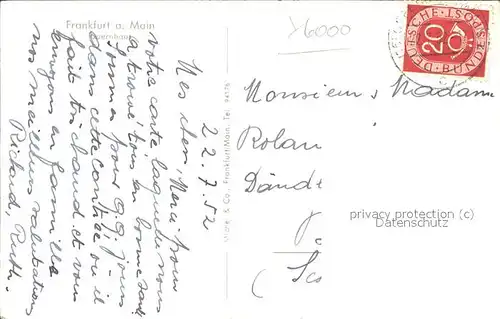 Frankfurt a. Main
22.7.52
Mes chers, Merci pour
votre carte, laquelle nous
a trouvé tous en bonne santé
Sommes pour qq. jours
dans cette contrée ou il
fait très chaud et vous
envoyons en famille
nos meilleurs salutations
Richard, Ruth.
& Co., Frankfurt/Main, Tel.
X6000
DEUTSCHE BUNDESPOST
20
Monsieur & Madame
Rolan
Dände
privacy protection (c)
Datenschutz